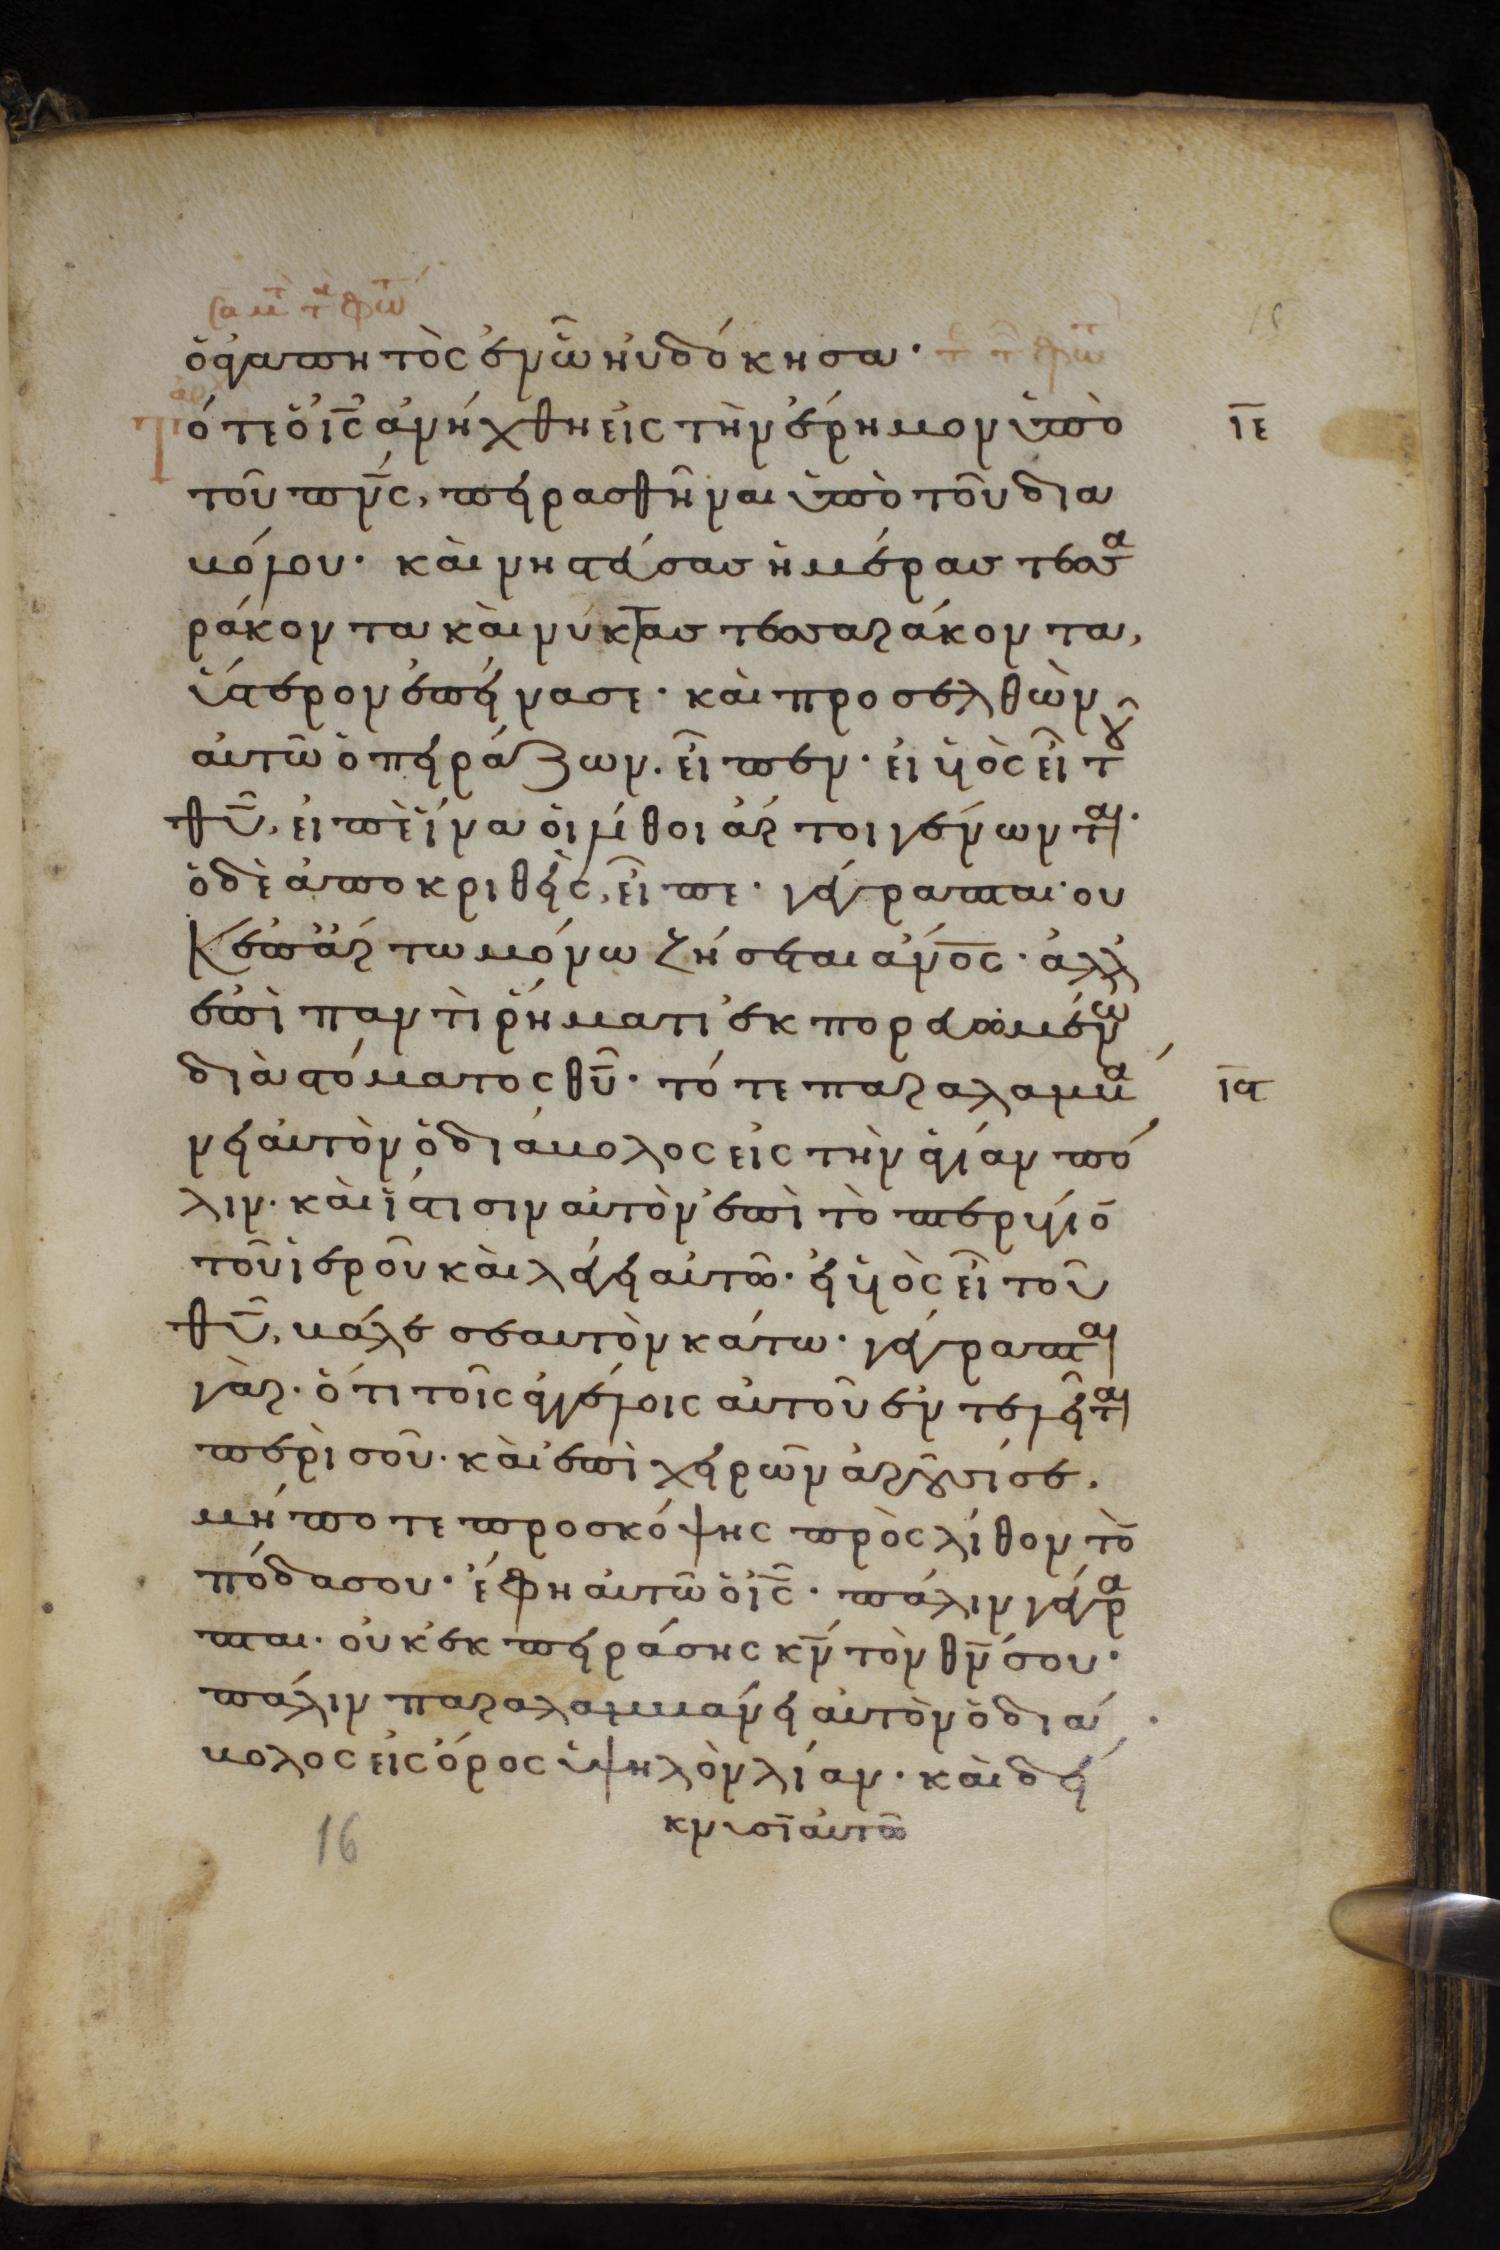 ὁ ἀγαπητὸς ἐν ὧ ηὐδόκησα·
Τότε ὁ ις ἀνήχθη εἰς τὴν ἔρημον ὑπὸ
ιε
τοῦ πνς, πειρασθῆναι ὑπὸ τοῦ δια
βόλου· καὶ νηστεύσας ἡμέρας τεσσα
ράκοντα καὶ νύκτας τεσσαράκοντα,
ὕστερον ἐπείνασε· καὶ προσελθὼν
αὐτῶ ὁ πειράζων. εἶπεν· εἰ υἱὸς εἶ του
θυ, εἰπὲ ἵνα οἱ λίθοι ἄρτοι γένωνται·
ὁ δὲ ἀποκριθεὶς, εἶπε· γέγραπται· ου
κ ἐπ ἄρτω μόνω ζήσεται ἄνος· ἀλλ
ἐπὶ παντὶ ῥήματι ἐκπορευομένω
διὰ στόματος θυ· τότε παραλαμβά
ις
νει αὐτὸν ὁ διάβολος εἰς τὴν ἁγίαν πό
λιν· καὶ ἵστισιν αὐτὸν ἐπὶ τὸ πτερύγιο
τοῦ ἱεροῦ καὶ λέγει αὐτῶ· εἰ υἱὸς εἶ τοῦ
θυ, βάλε σεαυτὸν κάτω· γέγραπται
γὰρ· ὅτι τοῖς ἀγγέλοις αὐτοῦ ἐντελεῖται
περὶ σοῦ· καὶ ἐπὶ χειρῶν ἀροῦσί σε.
μήποτε προσκόψης πρὸς λίθον τὸ
πόδα σου· ἔφη αὐτῶ ὁ ις· πάλιν γέγρα
πται· οὐκ ἐκπειράσης κν τὸν θν σου·
πάλιν παραλαμβάνει αὐτὸν ὁ διά
βολος εἰς ὄρος ὑψηλὸν λίαν· καὶ δεί
κνυσῖ αὐτῶ
16